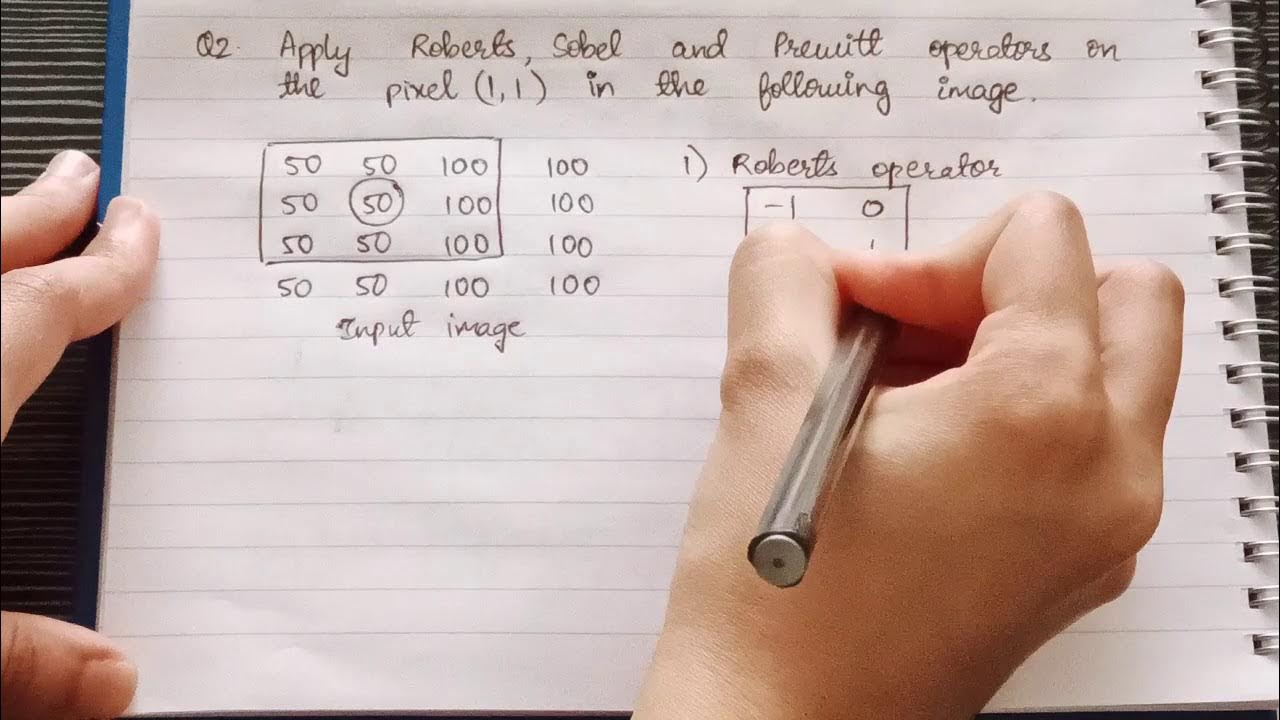 Q2. Apply Roberts, Sobel and Prewitt operators on
the pixel (1,1) in the following image.
50 50 100 100
50 50 100 100
50 50 100 100
50 50 100 100
Input image
1) Roberts operator
-1 0
1